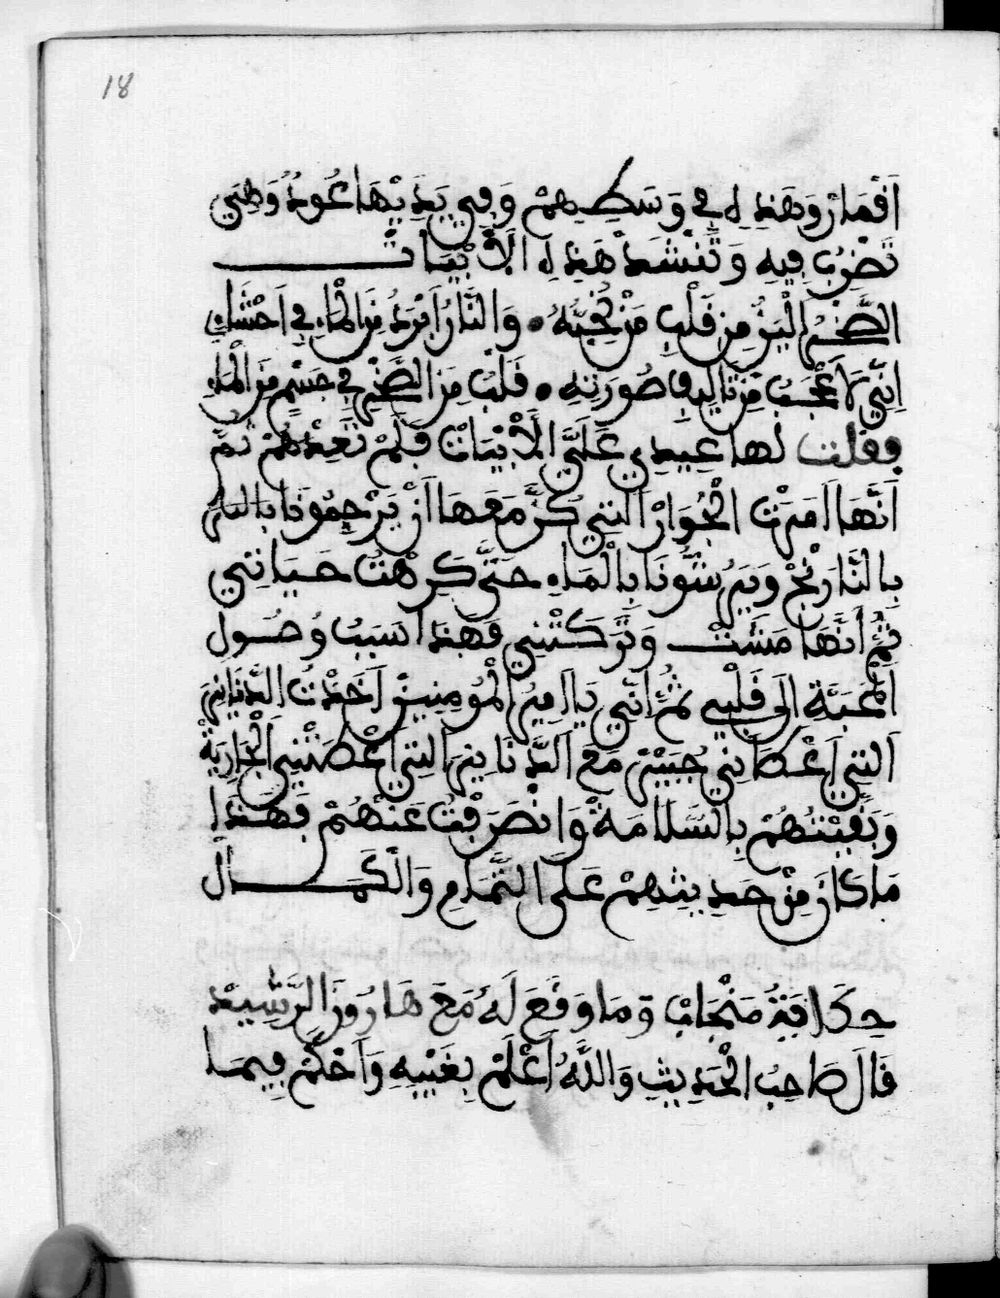 18
اَقْمَارْ وَهَذِهِ فِي وَسَطِهِمْ وَفِي يَدَيْهَا عُودْ وَهِيَ
تَضْرِبُ فِيهِ وَتَنْشَدْ هَذِهِ الْأَبْيَاتْ
الصَّخْرُ الْيَنُ مِنْ قَلْبٍ مَنْ نُحِبُّهُ • وَالنَّارُ اَبْرَدُ مِنَ الْمَاءِ فِي اَحْشَاءِ
اِنِّي لَاَعْجَبُ مِنْ تَالِيفِ صُورَتِهِ • قَلْبٌ مِنَ الصَّخْرِ فِي جِسْمٍ مِنَ الْمَاءِ
فقلت لها عِيدِي عَلَيَّ الْأَبْيَاتْ فَلَمْ تُعِدْهُمْ ثُمَّ
اَنَّهَا اَمَرَتْ الْجُوَارْ التِي كُنَّ مَعَهَا اَنْ يَرْجِمُونَا
بِالنَّارَنْجْ وَيَرُشُّونَا بِالْمَاءِ حَتَّى كَرِهْتُ حَيَاتِي
ثُمَّ اَنَّهَا مَشَتْ وَتَرَكَتْنِي فَهَذَا سَبَبُ وُصُولِ
الْمَحَبَّةِ اِلَى قَلْبِي ثُمَّ اَنِّي يَا اَمِيرُ الْمُومِنِينْ اَخَذْتُ الدَّنَانِيرَ
اَلتِي اَعْطَانِي جُبَيْرْ مَعَ الدَّنَانِيرِ التِي اَعْطَتْنِي الْجَارِيَةُ
وَبَقِيتُهُمْ بِالسَّلَامَةْ وَانْصَرَفْتُ عَنْهُمْ فَهَذَا
مَا كَانَ مِنْ حَدِيثِهِمْ عَلَى التَّمَامِ وَالْكَمَالْ
حِكَايَةُ مَنْجَابْ وَمَا وَقَعَ لَهُ مَعَ هَارُونَ الرَّشِيدْ
قَالَ صَاحِبُ الْحَدِيثِ وَاللَّهُ اَعْلَمْ بِغَيْبِهِ وَاَحْكَمْ فِيمَا